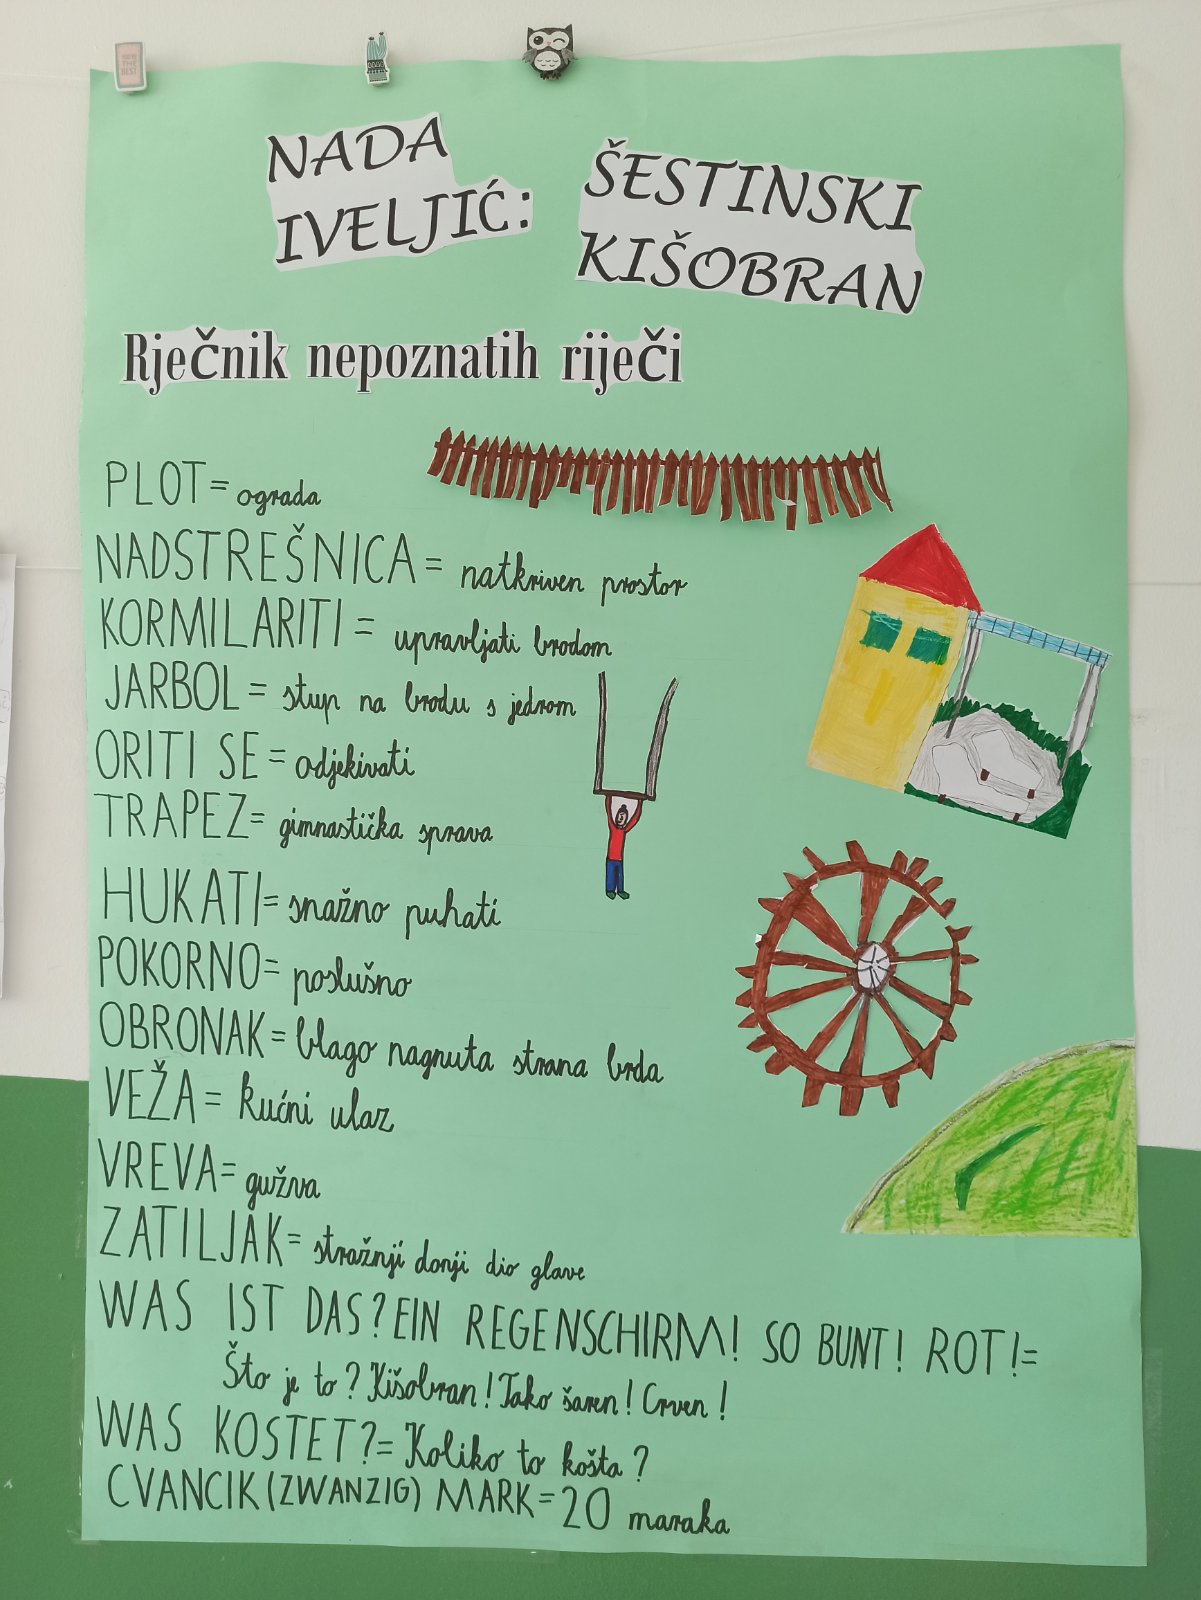 YOU'RE
THE
BEST
NADA
IVELJIĆ:
ŠESTINSKI
KIŠOBRAN
Rječnik nepoznatih riječi
PLOT = ograda
NADSTREŠNICA = natkriven prostor
KORMILARITI = upravljati brodom
JARBOL = stup na brodu s jedrom
ORITI SE = odjekivati
TRAPEZ = gimnastička sprava
HUKATI = snažno puhati
POKORNO = poslušno
OBRONAK = blago nagnuta strana brda
VEŽA = kućni ulaz
VREVA = gužva
ZATILJAK = stražnji donji dio glave
WAS IST DAS? EIN REGENSCHIRM! SO BUNT! ROT! =
Što je to? Kišobran! Tako šaren! Crven!
WAS KOSTET? = Koliko to košta?
CVANCIK (ZWANZIG) MARK = 20 maraka